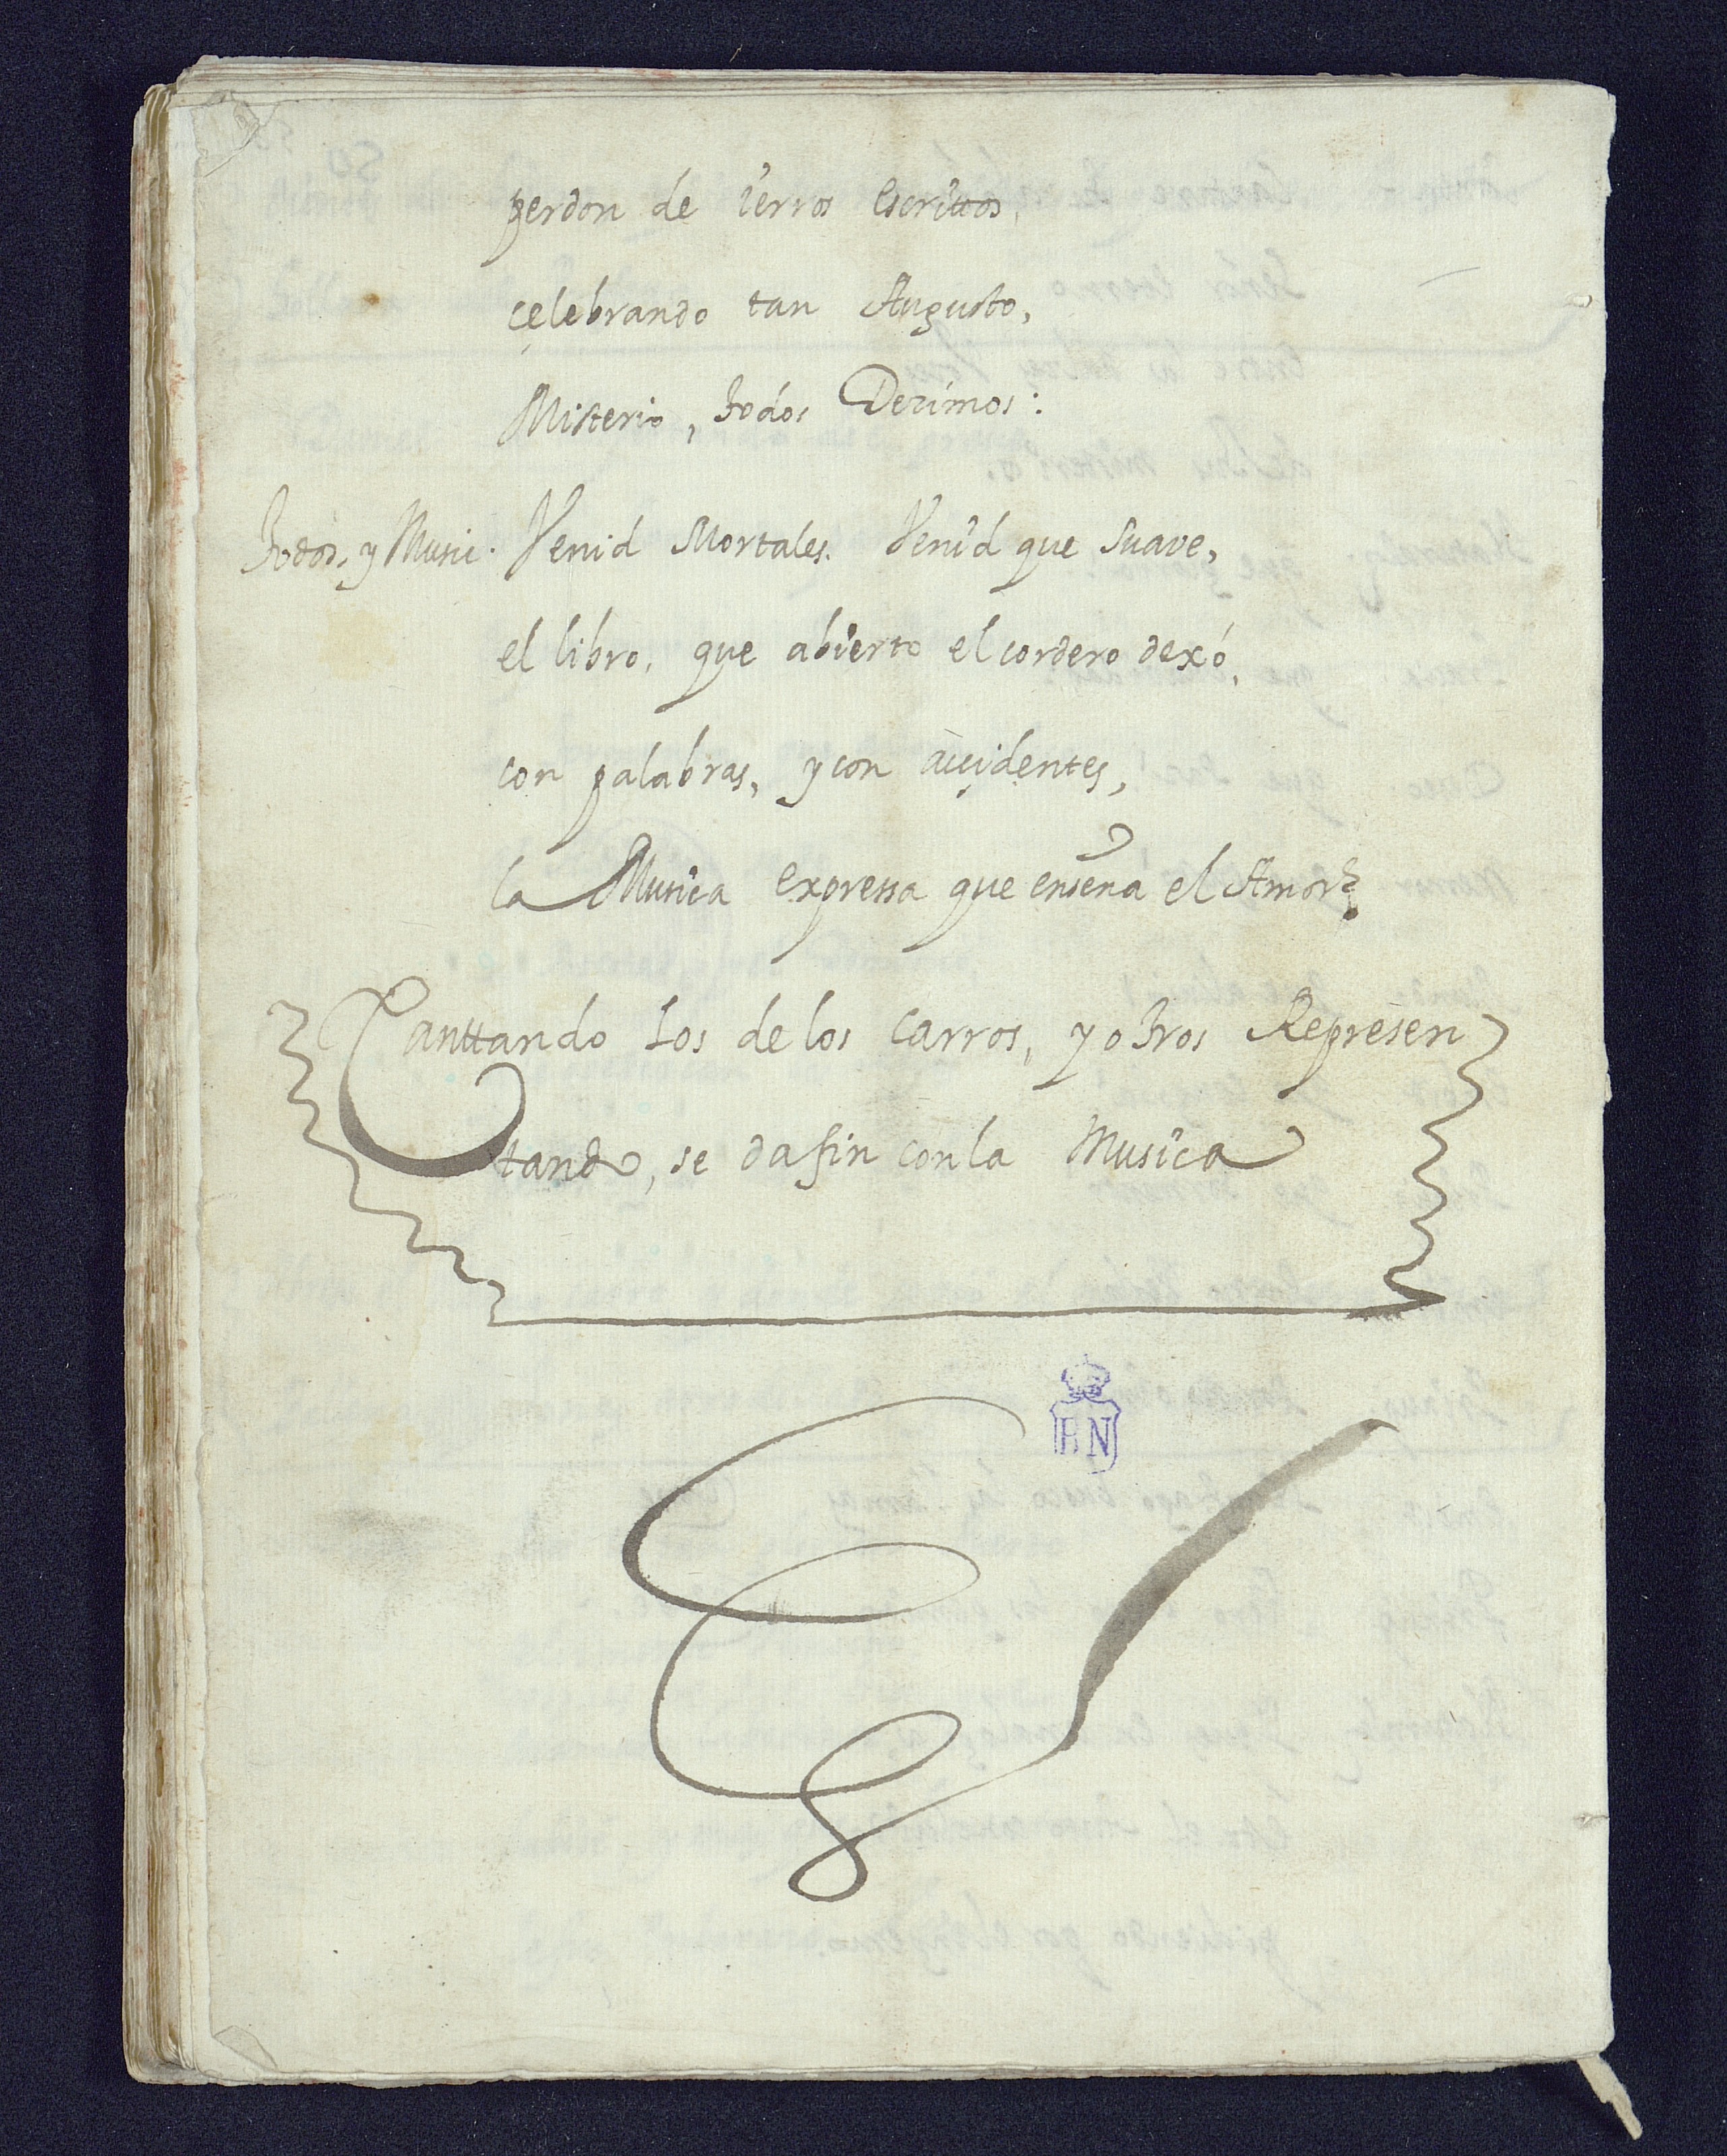 perdon de ierros escrittos,
çelebrando tan Augusto,
Misterio, todos Dezimos:
Todos, y Music. Venid Mortales. Venid que suave,
el libro, que abierto el cordero dexó,
con palabras, y con acçidentes,
la Musica expressa que enseña el Amor.
Canttando los de los carros, y otros Represen
tando, se da fin con la Musica
BN